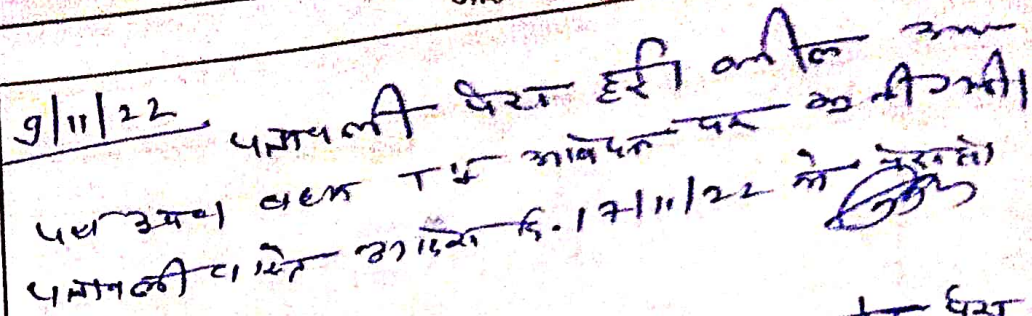 9/11/22 पत्रावली पेश हुई वकील उभय
पक्ष उप० बहस T I आवेदन पत्र सुनी गयी।
पत्रावली वास्ते आदेश दि. 17/11/22 को पेश हो
पेश